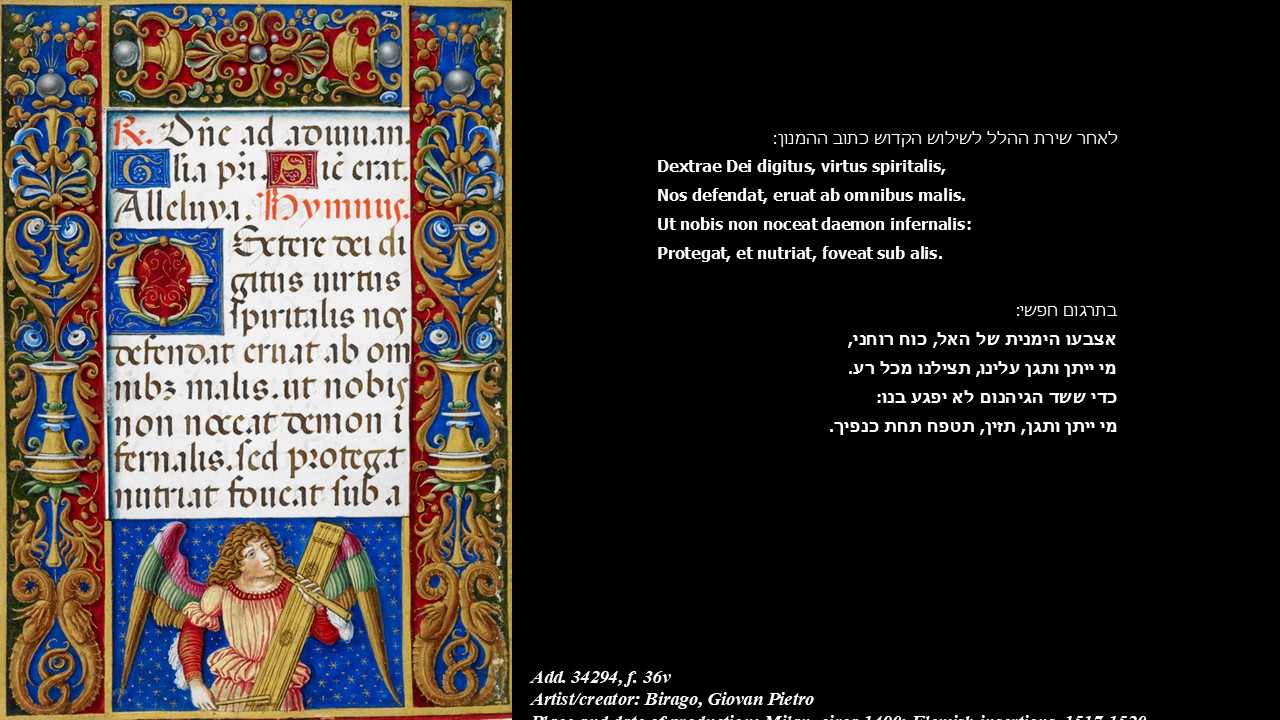 R. Dn̄e ad adiuuan
Glia pri. Sic̄ erat.
Alleluya. Hymnus.
DExtere dei di
gitus uirtus
spiritalis nos
defendat eruat ab om
nibȝ malis. ut nobis
non noceat demon i
fernalis. sed protegat
nutriat foueat sub a
לאחר שירת ההלל לשילוש הקדוש כתוב ההמנון:
Dextrae Dei digitus, virtus spiritalis,
Nos defendat, eruat ab omnibus malis.
Ut nobis non noceat daemon infernalis:
Protegat, et nutriat, foveat sub alis.
בתרגום חפשי:
אצבעו הימנית של האל, כוח רוחני,
מי ייתן ותגן עלינו, תצילנו מכל רע.
כדי ששד הגיהנום לא יפגע בנו:
מי ייתן ותגן, תזין, תטפח תחת כנפיך.
Add. 34294, f. 36v
Artist/creator: Birago, Giovan Pietro
Place and date of production: Milan, circa 1490; Flemish insertions, 1517-1520